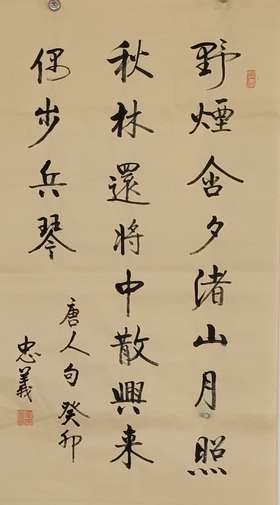 野煙含夕渚山月照
秋林還將中散興來
偶步兵琴
唐人句癸卯
忠義